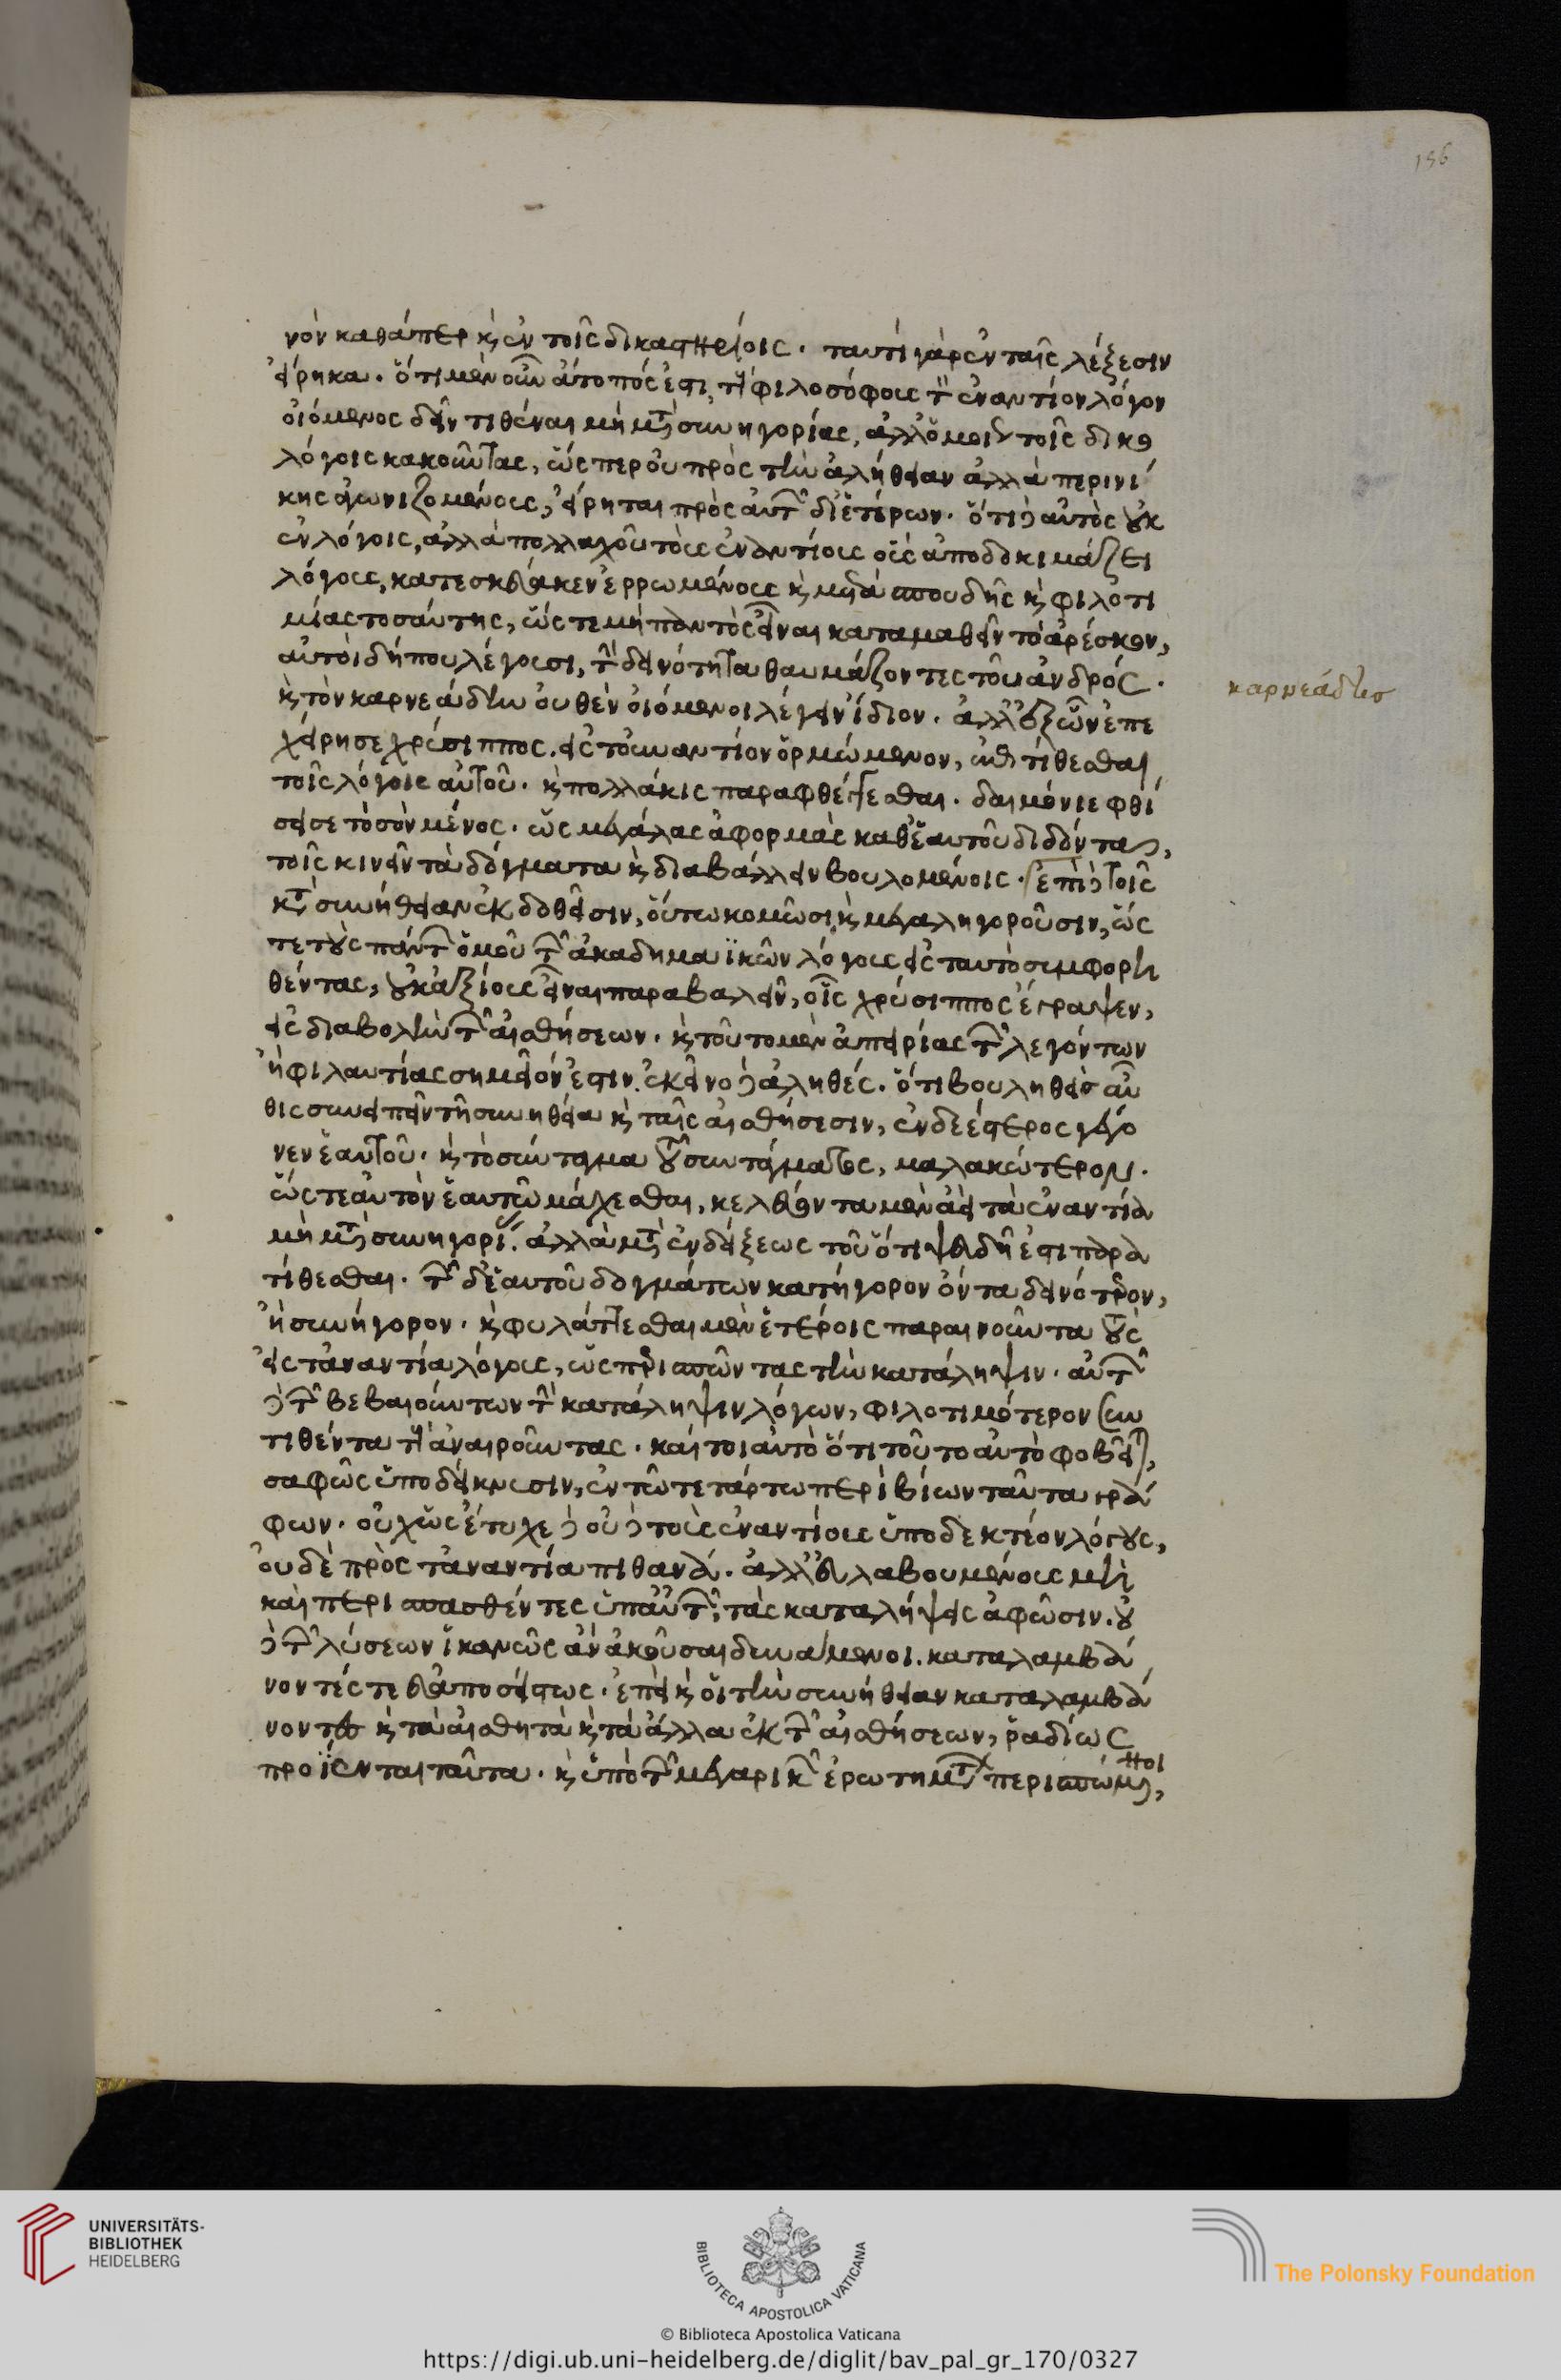 156
νὸν καθάπερ κ̀ ἐν τοῖς δικαστηρίοις. ταυτὶ γὰρ ἐν ταῖς λέξεσιν
εἴρηκα. ὅτι μὲν οὖν ἄτοπός ἐστι, τοὺς φιλοσόφους τὸν ἐναντίον λόγον
οἰόμενος δεῖν τιθέναι μὴ μετὰ συνηγορίας, ἀλλ' ὁμοίως τοῖς δικο
λόγοις κακοῦντας, ὥσπερ οὐ πρὸς τὴν ἀλήθειαν ἀλλὰ περὶ νί
κης ἀγωνιζομένους, εἴρηται πρὸς αὐτὸν δι' ἑτέρων. ὅτι δὲ αὐτὸς οὐκ
ἐν λόγοις, ἀλλὰ πολλαχοῦ τοὺς ἐναντίους οἷς ἀποδοκιμάζει
λόγους, κατεσκεύακεν ἐρρωμένως κ̀ μετὰ σπουδῆς κ̀ φιλοτι
μίας τοσαύτης, ὥστε μὴ παντὸς εἶναι καταμαθεῖν τὸ ἀρέσκον,
αὐτοὶ δήπου λέγουσι, τὴν δεινότητα θαυμάζοντες τοῦ ἀνδρός.
κ̀ τὸν καρνεάδην οὐθὲν οἰόμενοι λέγειν ἴδιον. ἀλλ' ἐξ ὧν ἐπε
χείρησε χρύσιππος. εἰς τοὐναντίον ὁρμώμενον, ἐπιτίθεσθαι
τοῖς λόγοις αὐτοῦ. κ̀ πολλάκις παραφθέγγεσθαι. δαιμόνιε φθί
σει σε τὸ σὸν μένος. ὡς μεγάλας ἀφορμὰς καθ' ἑαυτοῦ διδόντας,
τοῖς κινεῖν τὰ δόγματα κ̀ διαβάλλειν βουλομένοις. ἐπὶ δὲ τοῖς
κατὰ συνήθειαν ἐκδοθεῖσιν, οὕτω κομῶσι κ̀ μεγαληγοροῦσιν, ὥς
τε τοὺς πάντων ὁμοῦ τῶν ἀκαδημαϊκῶν λόγους εἰς ταυτὸ συμφορη
θέντας, οὐκ ἀξίους εἶναι παραβαλεῖν, οἷς χρύσιππος ἔγραψεν,
εἰς διαβολὴν τῶν αἰσθήσεων. κ̀ τοῦτο μὲν ἀπειρίας τῶν λεγόντων
ἢ φιλαυτίας σημεῖόν ἐστιν. ἐκεῖνο δὲ ἀληθές. ὅτι βουληθεὶς αὖ
θις συνειπεῖν τῇ συνηθείᾳ κ̀ ταῖς αἰσθήσεσιν, ἐνδεέστερος γέγο
νεν ἑαυτοῦ. κ̀ τὸ σύνταγμα τοῦ συντάγματος, μαλακώτερον.
ὥστε αὐτὸν ἑαυτῷ μάχεσθαι, κελεύοντα μὲν ἀεὶ τὰ ἐναντία
μὴ μετὰ συνηγορίας. ἀλλὰ μετὰ ἐνδείξεως τοῦ ὅτι ψευδῆ ἐστι παρα
τίθεσθαι. τῶν δ' ἑαυτοῦ δογμάτων κατήγορον ὄντα δεινότερον,
ἢ συνήγορον. κ̀ φυλάττεσθαι μὲν ἑτέροις παραινοῦντα τοὺς
εἰς τἀναντία λόγους, ὡς περισπῶντας τὴν κατάληψιν. αὐτὸν
δὲ τῶν βεβαιούντων τὴν κατάληψιν λόγων, φιλοτιμότερον συν
τιθέντα τοὺς ἀναιροῦντας. καίτοι αὐτὸ ὅτι τοῦτο αὐτὸ φοβεῖται,
σαφῶς ὑποδείκνυσιν, ἐν τῷ τετάρτῳ περὶ βίων ταῦτα γρά
φων. οὐχ ὡς ἔτυχε δὲ οὐδὲ τοὺς ἐναντίους ὑποδεκτέον λόγους,
οὐδὲ πρὸς τἀναντία πιθανά. ἀλλ' εὐλαβουμένους μὴ
καὶ περισπασθέντες ὑπ' αὐτῶν, τὰς καταλήψεις ἀφῶσιν. οὐ
δὲ τῶν λύσεων ἱκανῶς ἂν ἀκοῦσαι δυνάμενοι. καταλαμβά
νοντές τε εὐαποσείστως. ἐπεὶ κ̀ οἱ τὴν συνήθειαν καταλαμβά
νοντες κ̀ τὰ αἰσθητὰ κ̀ τὰ ἄλλα ἐκ τῶν αἰσθήσεων, ῥαδίως
προΐενται ταῦτα. κ̀ ὑπὸ τῶν μεγαρικῶν ἐρωτημάτων περισπώμενοι,
καρνεάδης
UNIVERSITÄTS-
BIBLIOTHEK
HEIDELBERG
BIBLIOTECA APOSTOLICA VATICANA
© Biblioteca Apostolica Vaticana
The Polonsky Foundation
https://digi.ub.uni-heidelberg.de/diglit/bav_pal_gr_170/0327